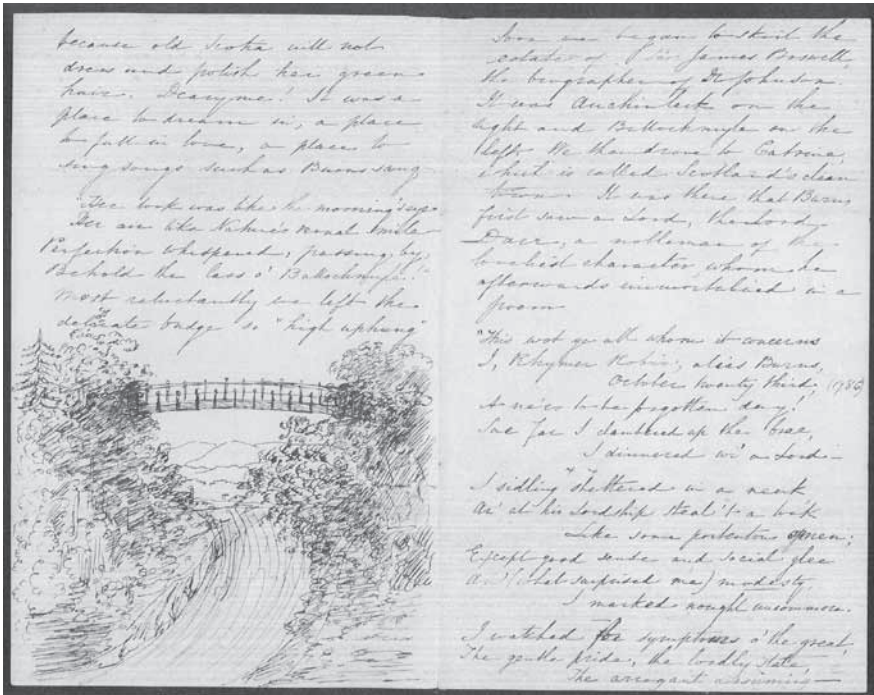 because old Scotia will not
dress and polish her green
hair. Deary me! It was a
place to dream in, a place
to fall in love, a place to
sing songs such as Burns sang
"Her look was like the morning's eye
Her air like Nature's vernal smile
Perfection whispered, passing by,
Behold the lass o' Ballochmyle!"
Most reluctantly we left the
delicate bridge so "high uphung"
Soon we began to skirt the
estate of Sir James Boswell,
the biographer of Dr Johnson.
It was Auchinleck on the
right and Ballochmyle on the
left. We then drove to Catrine,
which is called Scotland's clean
town. It was there that Burns
first saw a Lord, the Lord
Daer, a nobleman of the
loveliest character, whom he
afterwards immortalised in a
poem
"This wot ye all whom it concerns
I, Rhymer Robin, alias Burns,
October twenty third, (1786)
A ne'er to be forgotten day!
Sae far I clambered up the brae,
I dinnered wi' a Lord—
I sidling sheltered in a neuk
An' at his Lordship steal't a look
Like some portentous omen;
Except good sense and social glee
An' (what surprised me) modesty,
I marked nought uncommon.
I watched for symptoms o' the great,
The gentle pride, the lordly state,
The arrogant assuming—